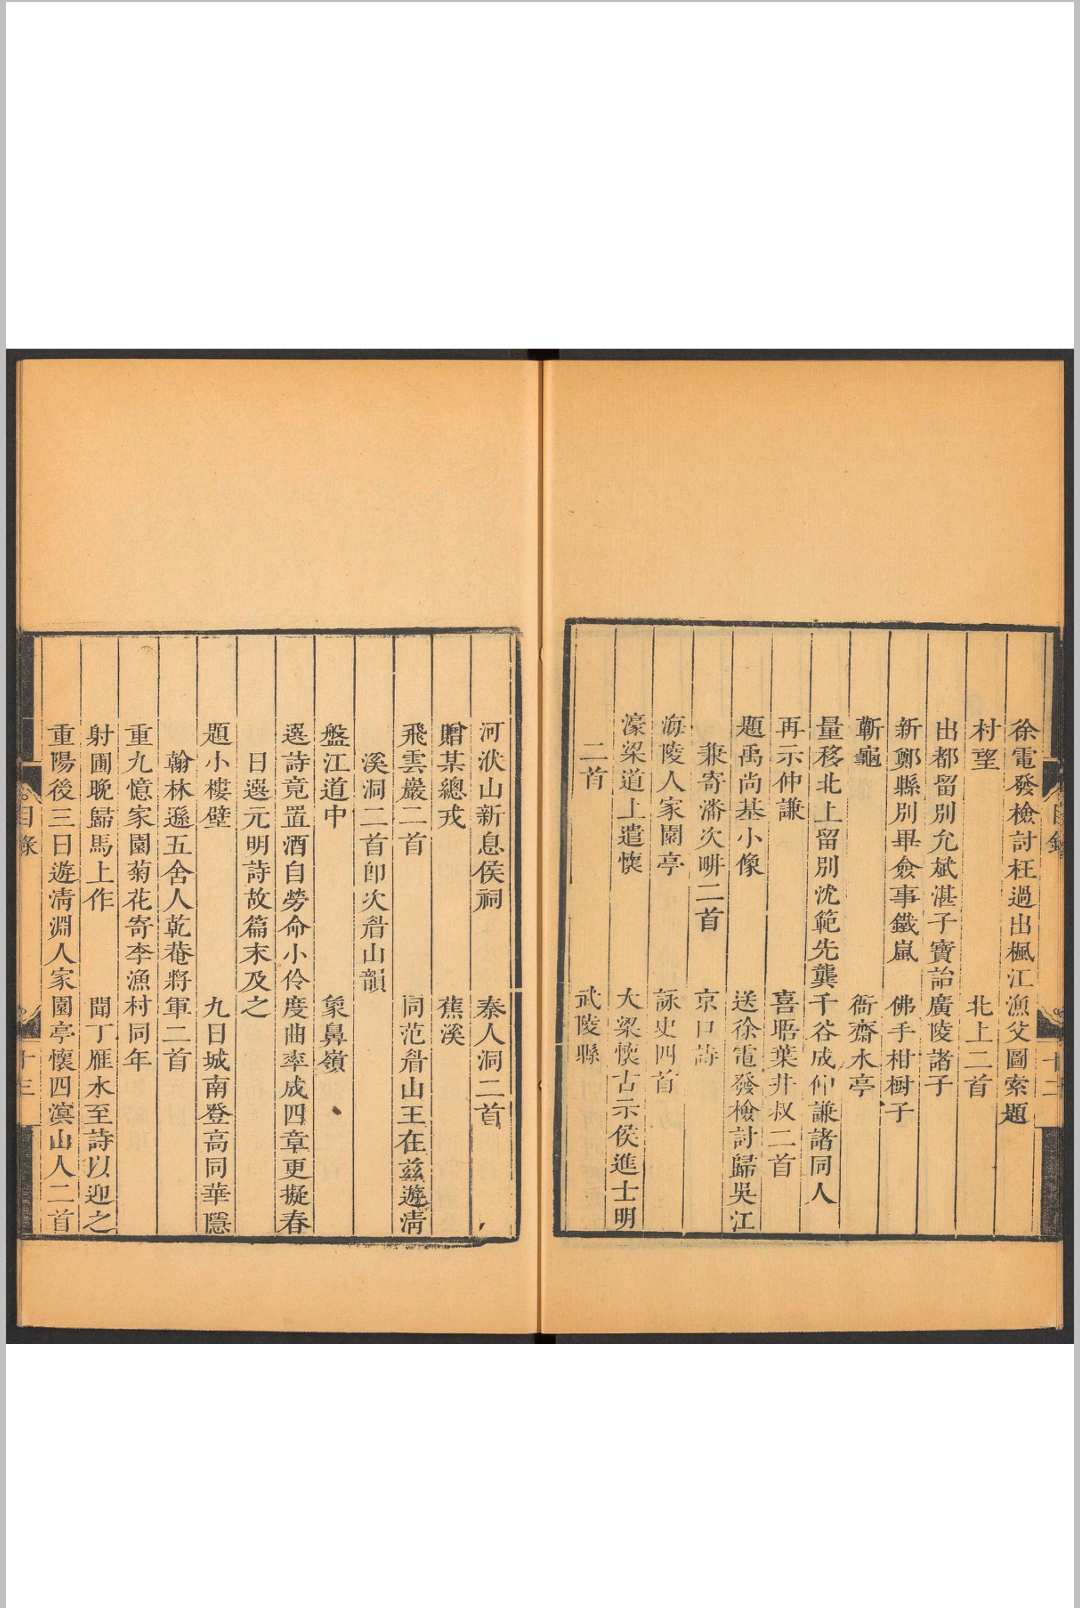 徐電發檢討枉過出楓江漁父圖索題
村望 北上二首
出都留別允斌湛子寶詒廣陵諸子
新鄭縣別畢僉事鐵嵐 佛手柑樹子
蘄龜 衙齋水亭
量移北上留別沈範先龔千谷成仰謙諸同人
再示仲謙 喜晤葉井叔二首
題禹尚基小像 送徐電發檢討歸吳江
兼寄潘次畊二首 京口詩
海陵人家園亭 詠史四首
濠梁道上遣懷 大梁懷古示侯進士明
二首 武陵縣
河洑山新息侯祠 秦人洞二首
贈某總戎 蕉溪
飛雲巖二首 同范眢山王在茲遊清
溪洞二首即次眢山韻
盤江道中 象鼻嶺
選詩竟置酒自勞命小伶度曲率成四章更擬春
日選元明詩故篇末及之
題小樓壁 九日城南登高同華隱
翰林遜五舍人乾菴將軍二首
重九憶家園菊花寄李漁村同年
射圃晚歸馬上作 聞丁雁水至詩以迎之
重陽後三日遊清淵人家園亭懷四溟山人二首
目錄
十三